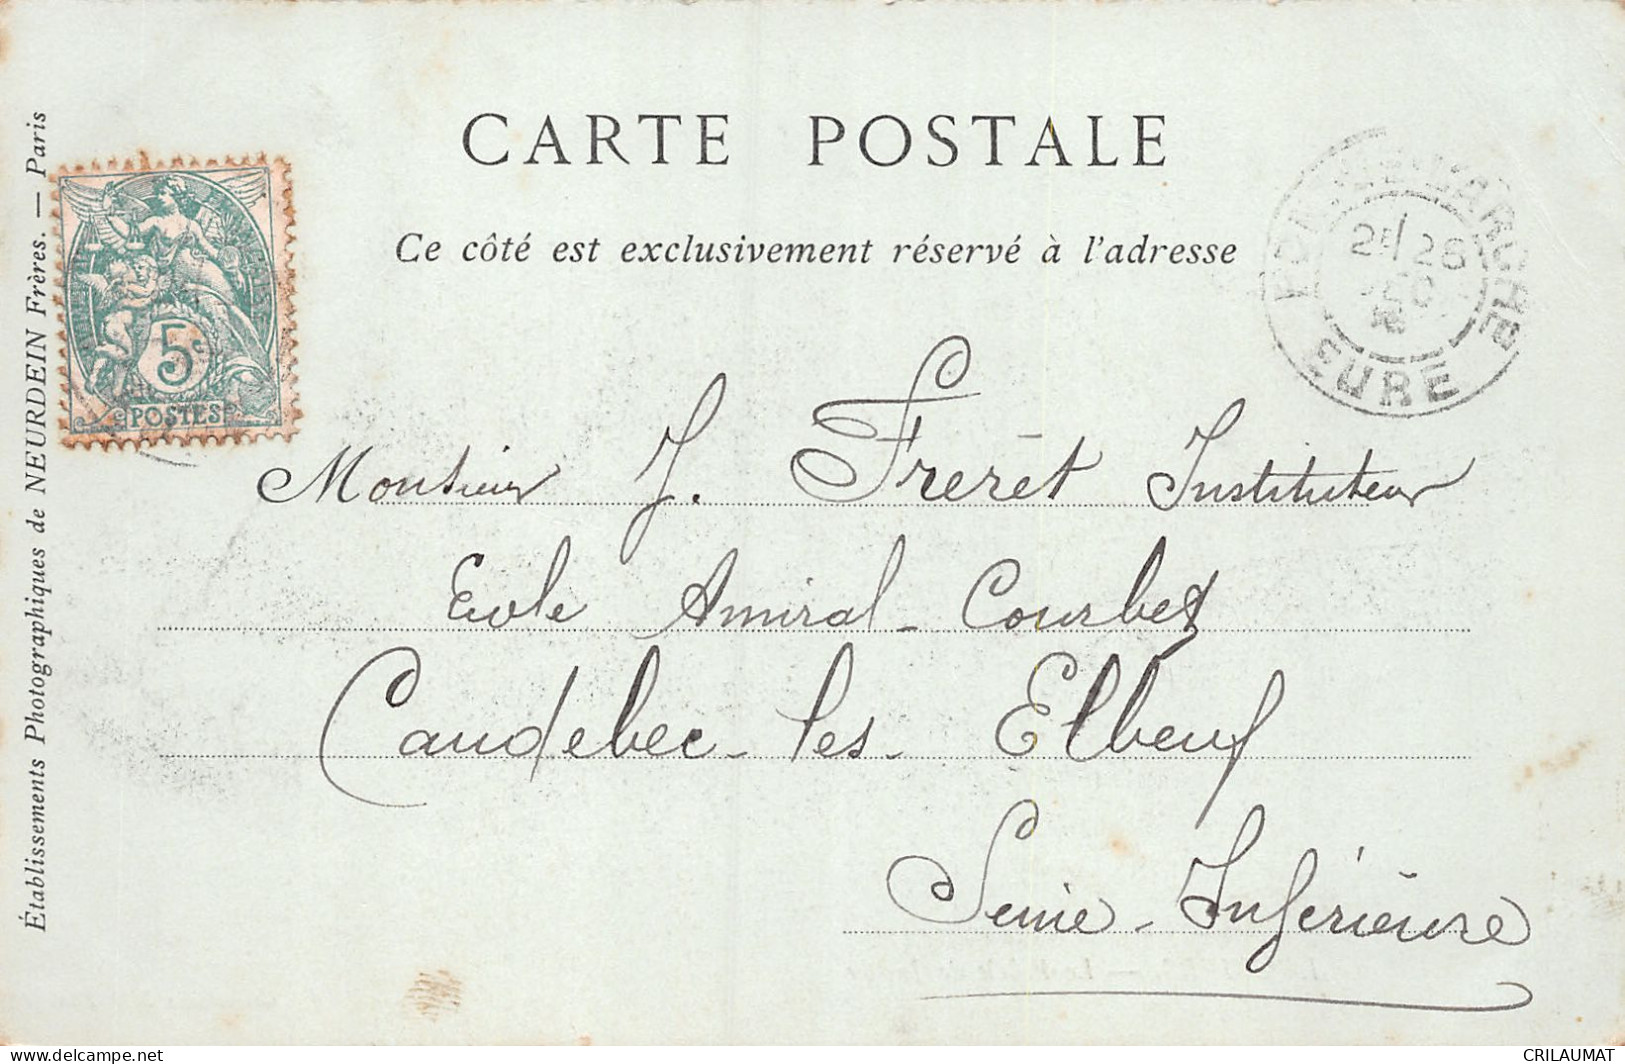 CARTE POSTALE
Ce côté est exclusivement réservé à l'adresse
Établissements Photographiques de NEURDEIN Frères. — Paris
5c
POSTES
EURE
Monsieur J. Frérét Instituteur
Ecole Amiral-Courbet
Caudebec-les-Elbeuf
Seine-Inférieure
delcampe.net
CRILAUMAT